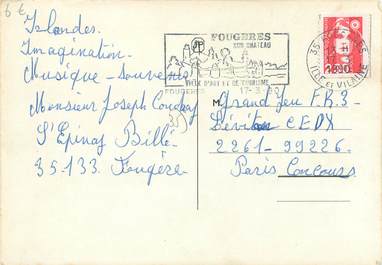 6 €
Islandes.
Imagination.
Musique - Souvenir
Monsieur Joseph
St Epinay Billé.
35-133. Fougère
35
FOUGERES
SON CHATEAU
VILLE D'ART ET DE TOURISME
FOUGERES 17-3
35
ILLE ET VILAINE
M
Grand Jeu F.R.3-
CEDX
2261-99226-
Paris Concours